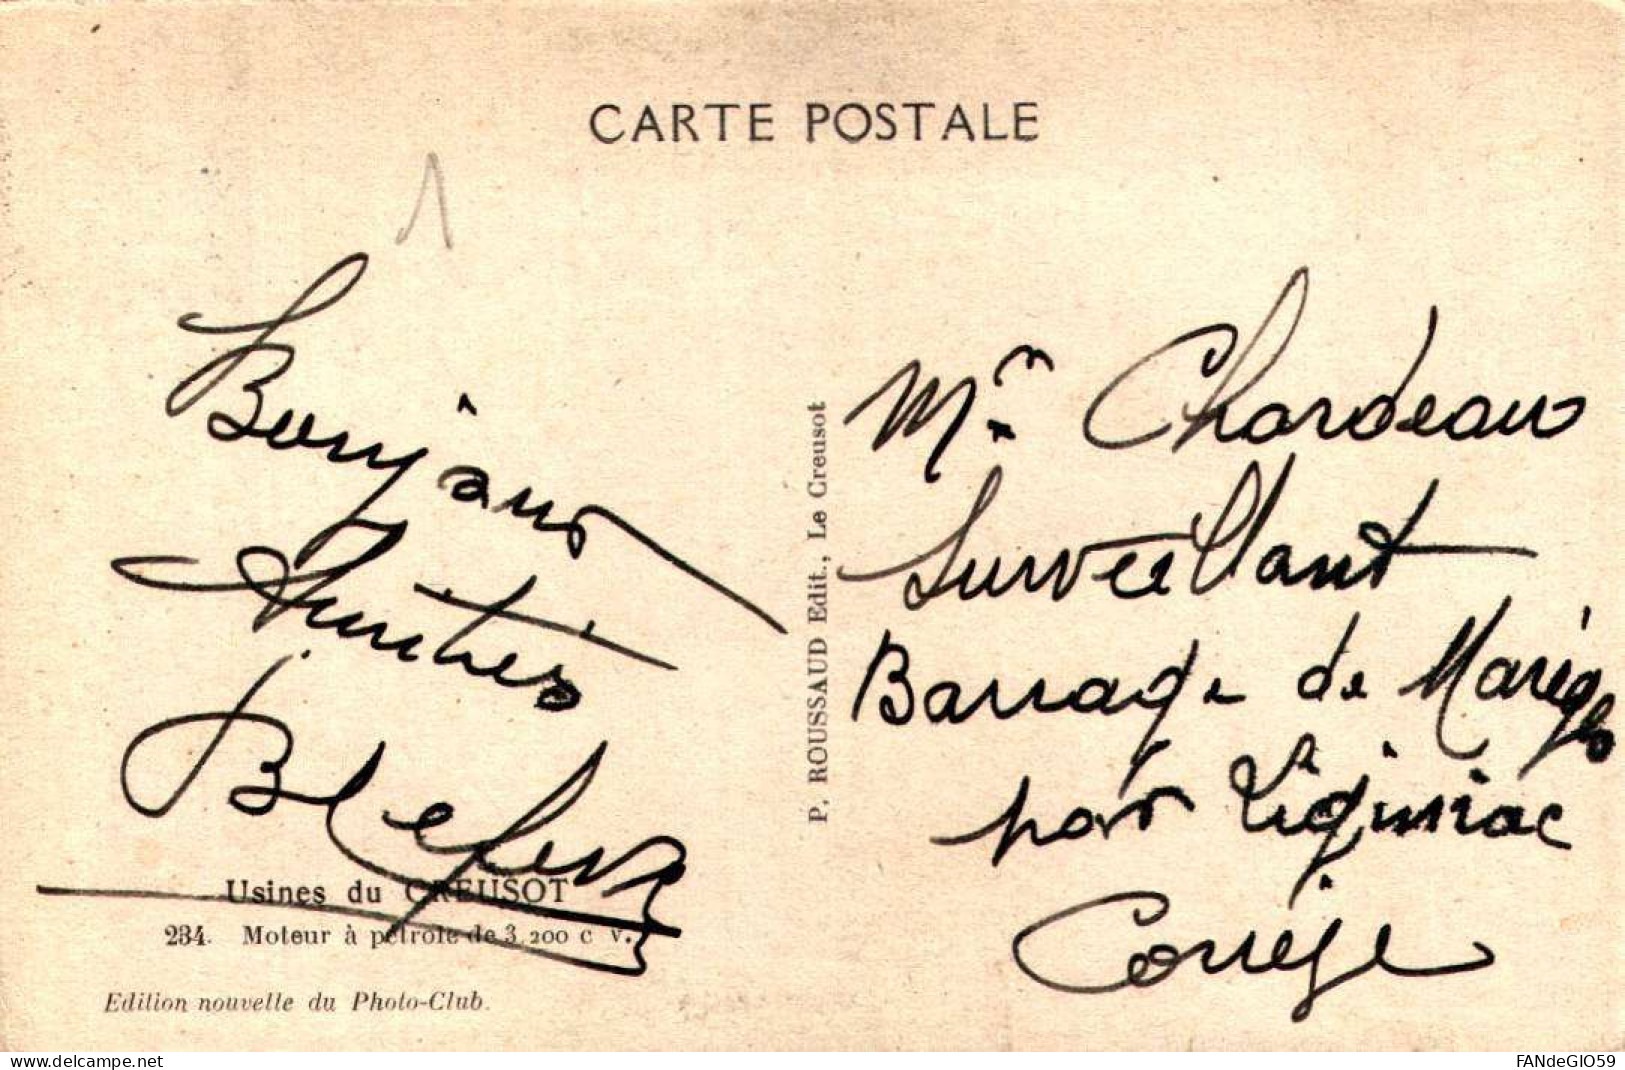 CARTE POSTALE
1
Bonjour
Amitiés
BLefeu
Usines du CREUSOT
234. Moteur à pétrole de 3.200 c. v.
Edition nouvelle du Photo-Club.
P. ROUSSAUD Edit., Le Creusot
Mr Chardeau
Surveillant
Barrage de Marèges
par Liginiac
Corrèze
www.delcampe.net
FANdeGIO59